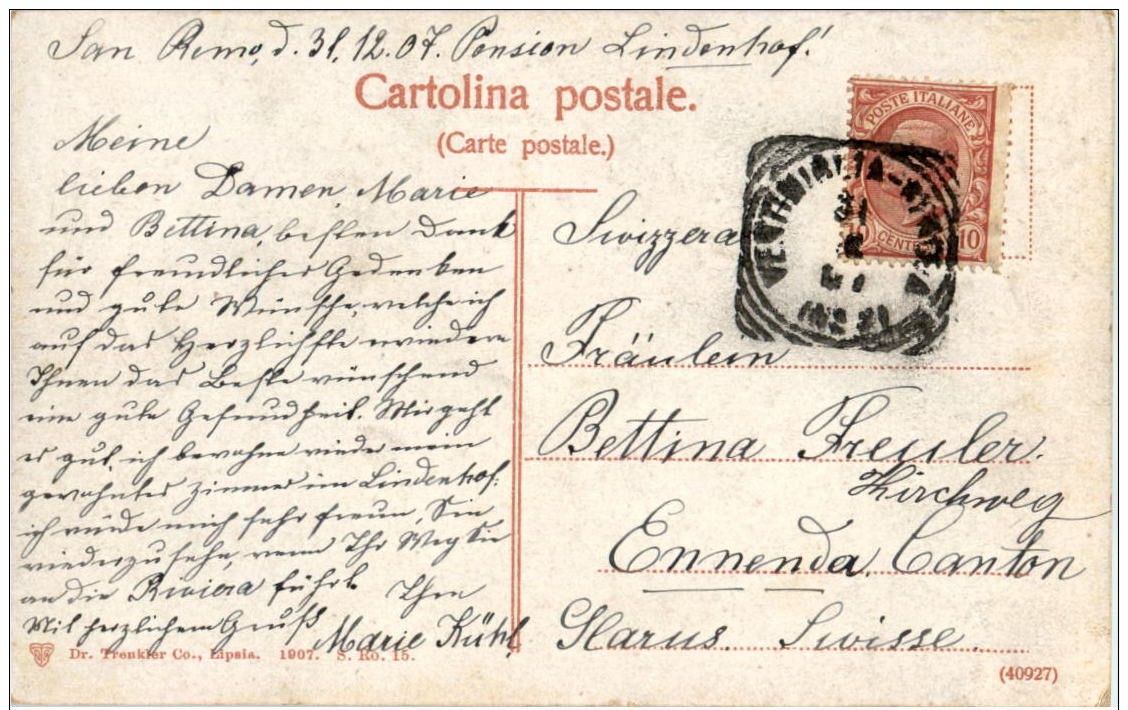 San Remo, d. 31.12.07. Pension Lindenhof!
Cartolina postale.
(Carte postale.)
Meine
lieben Damen, Marie
und Bettina, besten Dank
für freundliches Gedenken
und gute Wünsche, welche ich
auf das Herzlichste erwiedere
Ihnen das Beste wünschend
eine gute Gesundheit. Mir geht
es gut, ich bewohne wieder mein
gewohntes Zimmer im Lindenhof.
ich würde mich sehr freuen, Sie
wiederzusehn, wenn Ihr Weg Sie
an die Riviera führt. Ihre
Mit herzlichem Gruß
Marie Kühl
POSTE ITALIANE
10 CENTES 10
VENTIMIGLIA-
Svizzera
Fräulein
Bettina Freuler.
Kirchweg
Ennenda, Canton
Glarus. Svisse.
Dr. Trenkler Co., Lipsia. 1907. S. Ro. 15.
(40927)